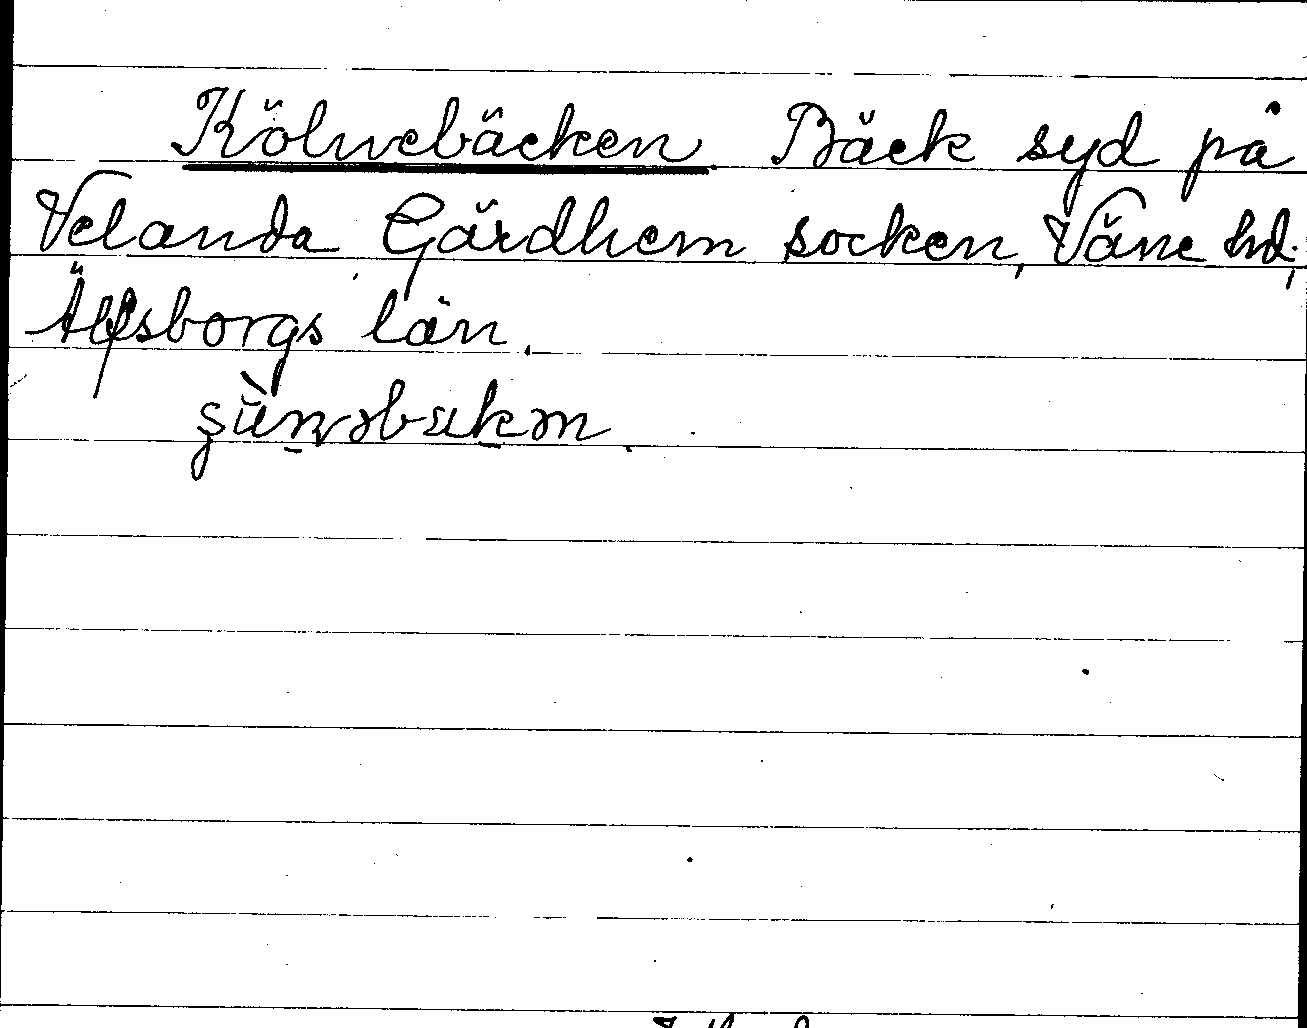 Kölnebäcken. Bäck syd på
Velanda Gärdhem socken, Väne hd,
Älfsborgs län.